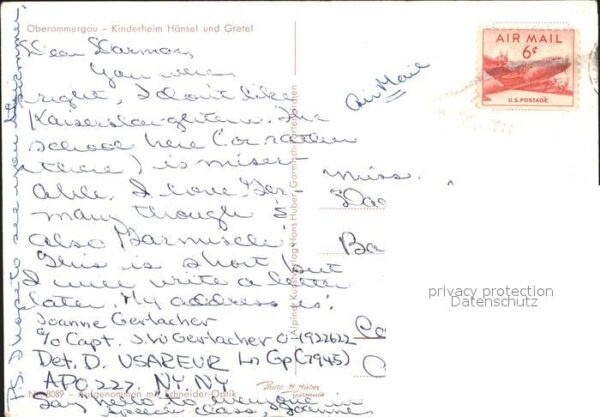 Oberammergau – Kinderheim Hänsel und Gretel
Dear Darmon,
You were
right, I don't like
Kaiserslaughtern. The
school here (or rather
there) is miser-
able. I love Ger-
many though &
also Garmisch.
This is short but
I will write a letter
later. My address is:
Joanne Gerlacher
c/o Capt. J.W. Gerlacher O-1922622
Det. D. USAREUR Ln Gp (7945)
APO 227, NY. NY.
Say hello to everyone in
class, Joanne
P.S. I hope to see you
Nr. 8089 – Aufgenommen mit Schneider-Optik
Alpiner Kunstverlag Hans Huber, Garmisch-Partenkirchen
AIR MAIL
6¢
U.S. POSTAGE
Air Mail
Miss.
privacy protection
Datenschutz